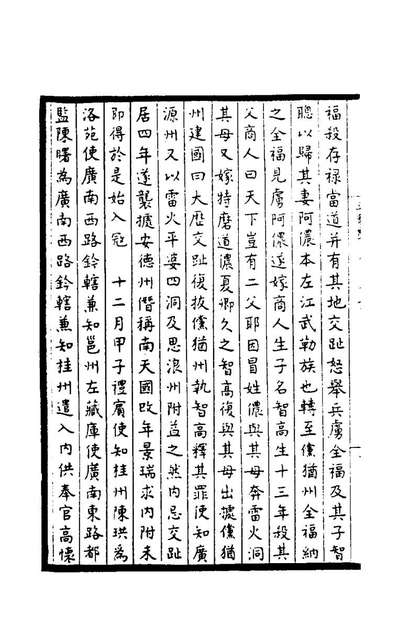 福殺存禄當道并有其地交趾怒舉兵虜全福及其子智
聰以歸其妻阿儂本左江武勒族也轉至儻猶州全福納
之全福見虜阿儂遂嫁商人生子名智高生十三年殺其
父商人曰天下豈有二父耶因冒姓儂與其母奔雷火洞
其母又嫁特磨道儂夏卿久之智高復與其母出據儻猶
州建國曰大歴交趾復抜儻猶州執智高釋其罪使知廣
源州又以雷火平婆四洞及思浪州附益之然内忌交趾
居四年遂襲據安徳州僭稱南天國改年景瑞求内附未
即得於是始入冦 十二月甲子禮賓使知桂州陳珙為
洛苑使廣南西路鈐轄兼知邕州左藏庫使廣南東路都
監陳曙為廣南西路鈐轄兼知桂州遣入内供奉官高懐